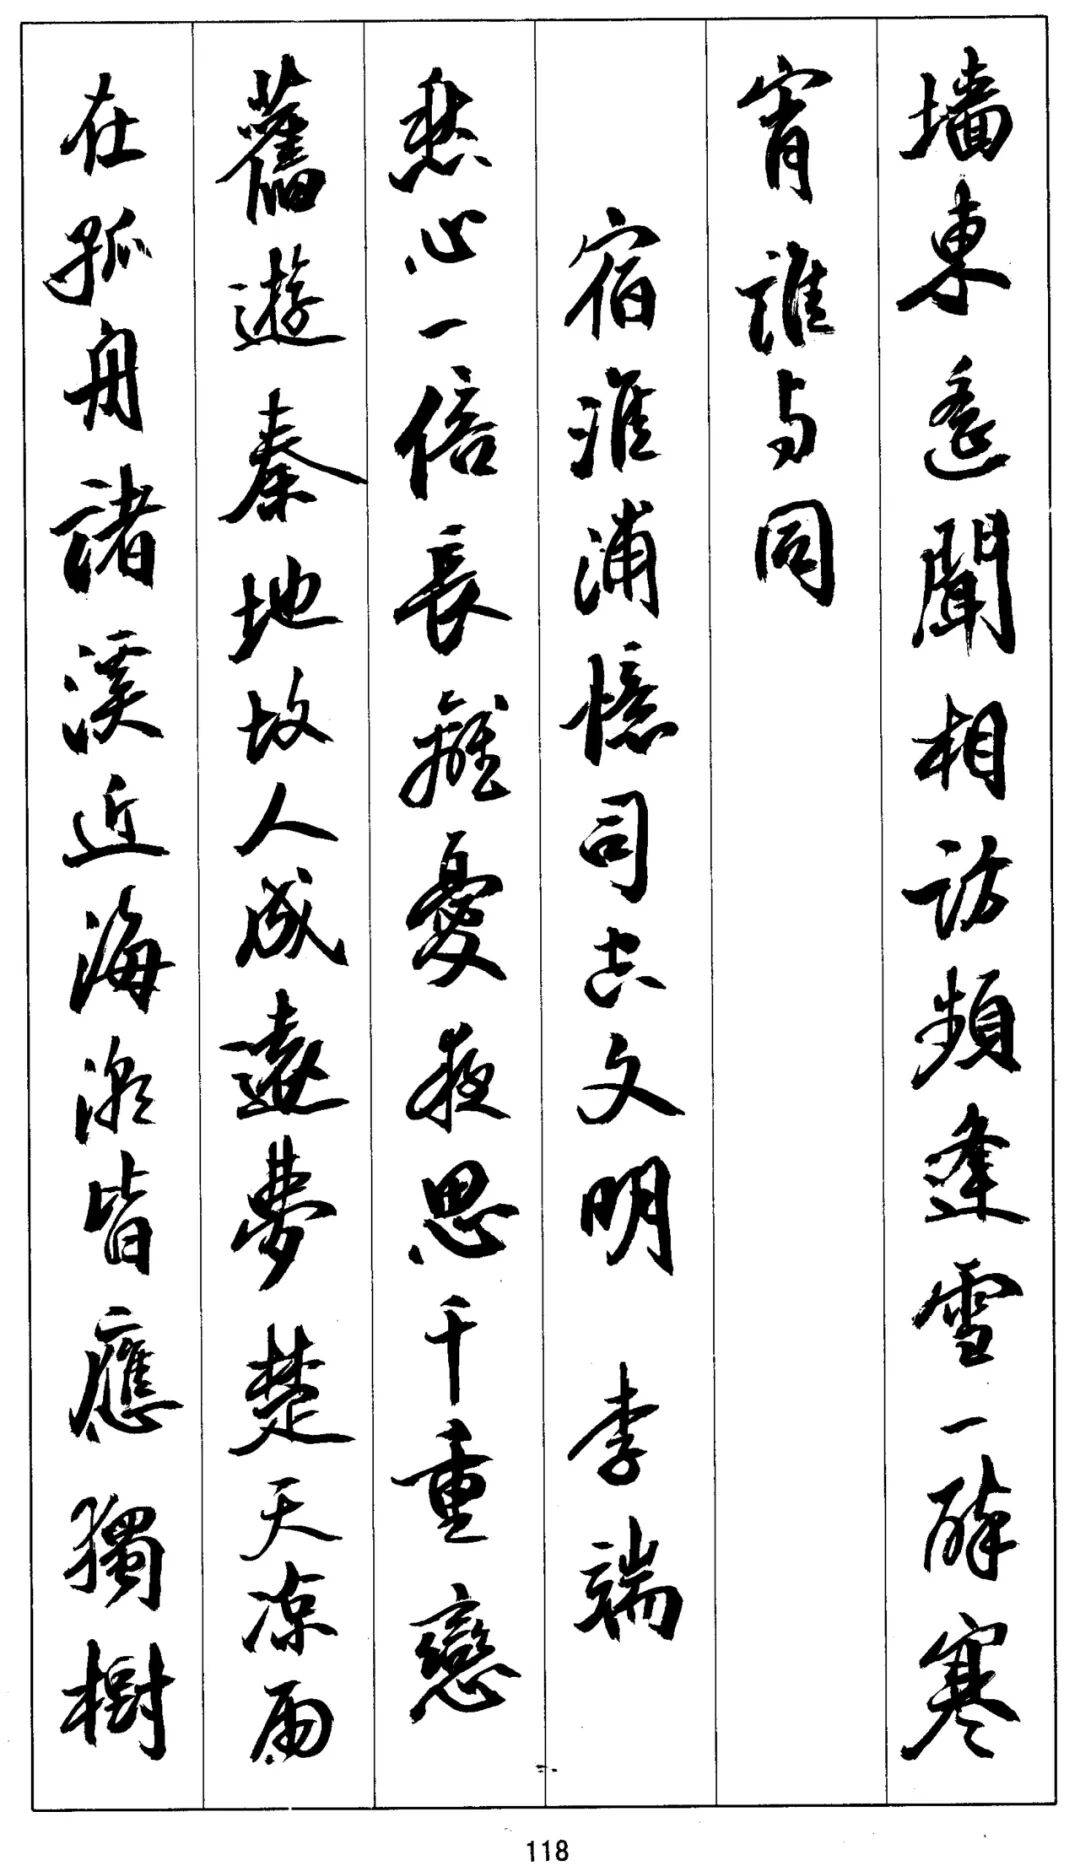 墙東遥聞相訪頻逢雪一醉寒
宵誰与同
宿淮浦憶司空文明 李端
愁心一倍長離憂夜思千重戀
舊遊秦地故人成遠夢楚天凉雨
在孤舟諸溪近海潮皆應獨樹
118